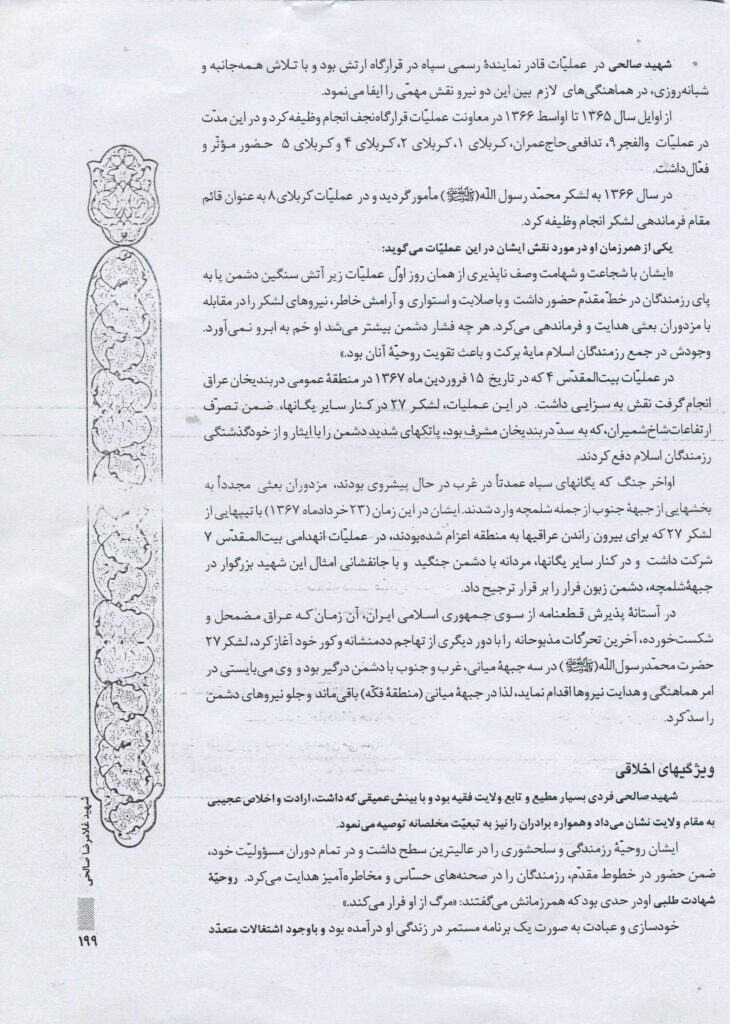 شهید صالحی در عملیّات قادر نمایندهٔ رسمی سپاه در قرارگاه ارتش بود و با تلاش همه‌جانبه و
شبانه‌روزی، در هماهنگی‌های لازم بین این دو نیرو نقش مهمّی را ایفا می‌نمود.
از اوایل سال ۱۳۶۵ تا اواسط ۱۳۶۶ در معاونت عملیّات قرارگاه نجف انجام وظیفه کرد و در این مدّت
در عملیّات والفجر ۹، تدافعی حاج‌عمران، کربلای ۱، کربلای ۲، کربلای ۴ و کربلای ۵ حضور مؤثّر و
فعّال داشت.
در سال ۱۳۶۶ به لشکر محمّد رسول اللّه(ﷺ) مأمور گردید و در عملیّات کربلای ۸ به عنوان قائم
مقام فرماندهی لشکر انجام وظیفه کرد.
یکی از همرزمان او در مورد نقش ایشان در این عملیّات می‌گوید:
«ایشان با شجاعت و شهامت وصف ناپذیری از همان روز اوّل عملیّات زیر آتش سنگین دشمن پا به
پای رزمندگان در خطّ مقدّم حضور داشت و با صلابت و استواری و آرامش خاطر، نیروهای لشکر را در مقابله
با مزدوران بعثی هدایت و فرماندهی می‌کرد. هر چه فشار دشمن بیشتر می‌شد او خم به ابرو نمی‌آورد.
وجودش در جمع رزمندگان اسلام مایهٔ برکت و باعث تقویت روحیّهٔ آنان بود.»
در عملیّات بیت‌المقدّس ۴ که در تاریخ ۱۵ فروردین ماه ۱۳۶۷ در منطقهٔ عمومی دربندیخان عراق
انجام گرفت نقش به سزایی داشت. در این عملیات، لشکر ۲۷ در کنار سایر یگانها، ضمن تصرّف
ارتفاعات شاخ‌شمیران، که به سدّ دربندیخان مشرف بود، پاتکهای شدید دشمن را با ایثار و از خودگذشتگی
رزمندگان اسلام دفع کردند.
اواخر جنگ که یگانهای سپاه عمدتاً در غرب در حال پیشروی بودند، مزدوران بعثی مجدداً به
بخشهایی از جبههٔ جنوب از جمله شلمچه وارد شدند. ایشان در این زمان (۲۳ خردادماه ۱۳۶۷) با تیپهایی از
لشکر ۲۷ که برای بیرون راندن عراقیها به منطقه اعزام شده‌بودند، در عملیّات انهدامی بیت‌المقدّس ۷
شرکت داشت و در کنار سایر یگانها، مردانه با دشمن جنگید و با جانفشانی امثال این شهید بزرگوار در
جبههٔ شلمچه، دشمن زبون فرار را بر قرار ترجیح داد.
در آستانهٔ پذیرش قطعنامه از سوی جمهوری اسلامی ایران، آن زمان که عراق مضمحل و
شکست‌خورده، آخرین تحرّکات مذبوحانه را با دور دیگری از تهاجم ددمنشانه و کور خود آغاز کرد، لشکر ۲۷
حضرت محمّد رسول اللّه(ﷺ) در سه جبههٔ میانی، غرب و جنوب با دشمن درگیر بود و وی می‌بایستی در
امر هماهنگی و هدایت نیروها اقدام نماید، لذا در جبههٔ میانی (منطقهٔ فکّه) باقی‌ماند و جلو نیروهای دشمن
را سدّ کرد.
ویژگیهای اخلاقی
شهید صالحی فردی بسیار مطیع و تابع ولایت فقیه بود و با بینش عمیقی که داشت، ارادت و اخلاص عجیبی
به مقام ولایت نشان می‌داد و همواره برادران را نیز به تبعیّت مخلصانه توصیه می‌نمود.
ایشان روحیّهٔ رزمندگی و سلحشوری را در عالیترین سطح داشت و در تمام دوران مسؤولیّت خود،
ضمن حضور در خطوط مقدّم، رزمندگان را در صحنه‌های حسّاس و مخاطره‌آمیز هدایت می‌کرد. روحیّهٔ
شهادت طلبی او در حدی بود که همرزمانش می‌گفتند: «مرگ از او فرار می‌کند.»
خودسازی و عبادت به صورت یک برنامه مستمر در زندگی او درآمده بود و باوجود اشتغالات متعدّد
شهید غلامرضا صالحی
۱۹۹